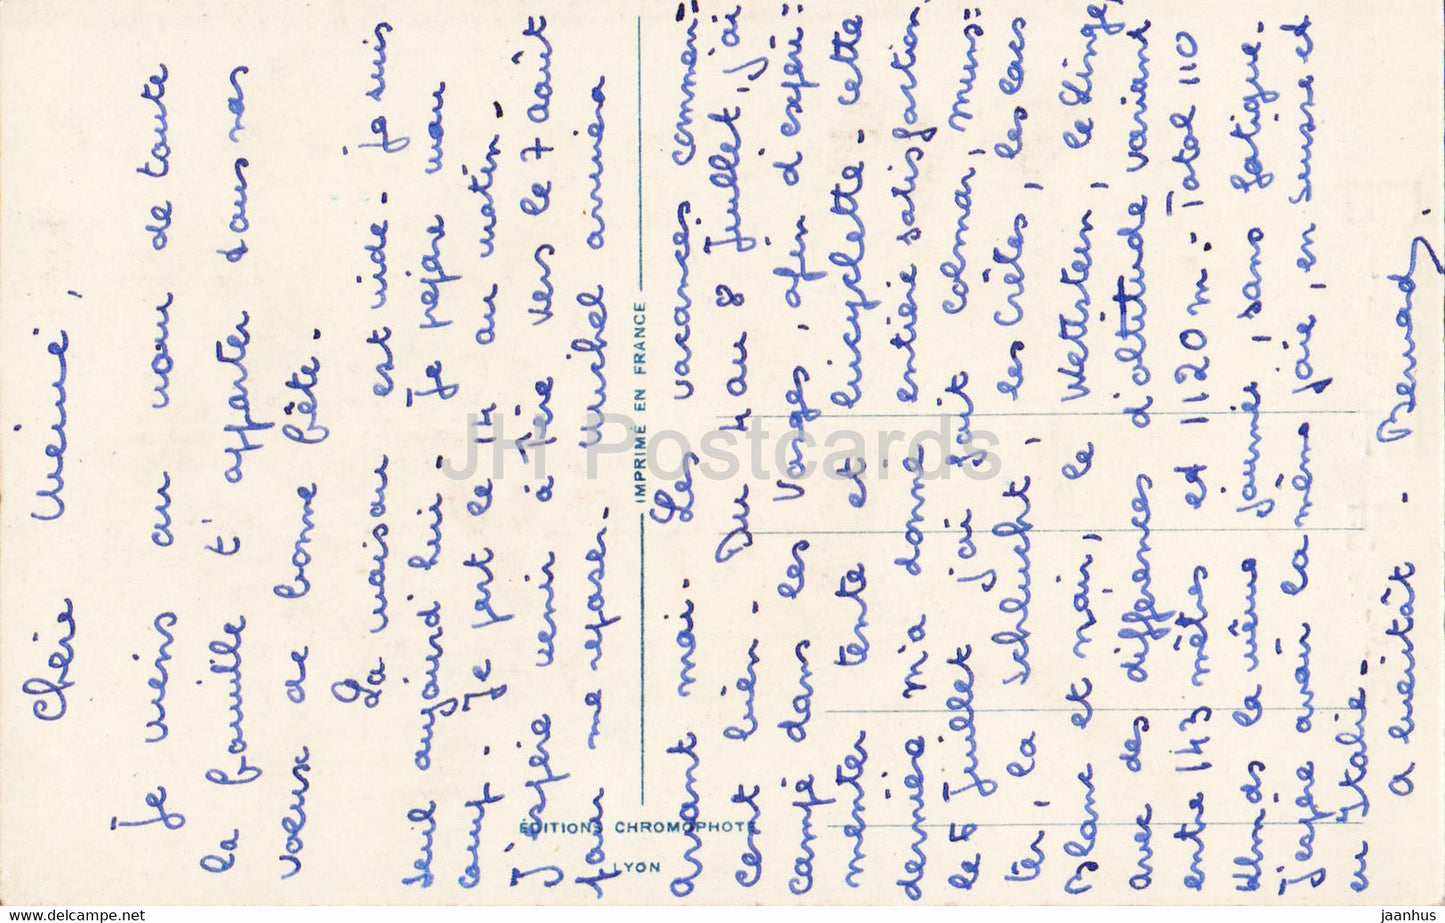 Chère Mémé,
Je viens au nom de toute
la famille t'apporter tous nos
voeux de bonne fête.
La maison est vide. je suis
seul aujourd'hui. Je prépare mon
camp. Je part le 14 au matin.
J'espère venir à Fère vers le 7 août
pour me reposer. Michel arrivera
avant moi. Les vacances commen=
cent bien. Du 4 au 8 Juillet, j'ai
campé dans les Vosges, afin d'expéri=
menter tente et bicyclette. cette
dernière m'a donné entière satisfaction,
le 5 Juillet j'ai fait Colmar, Muns=
ter, la Schlucht, les Crêtes, les lacs
Blanc et noir, le Wettstein, le Linge,
avec des différences d'altitude variant
entre 143 mètres et 1120 m. Total 110
Klms la même journée, sans fatigue.
J'espère avoir la même joie, en Suisse et
en Italie.
A bientôt. Bernard.
IMPRIMÉ EN FRANCE
ÉDITIONS CHROMOPHOTE
LYON
JH Postcards
www.delcampe.net
jaanhus